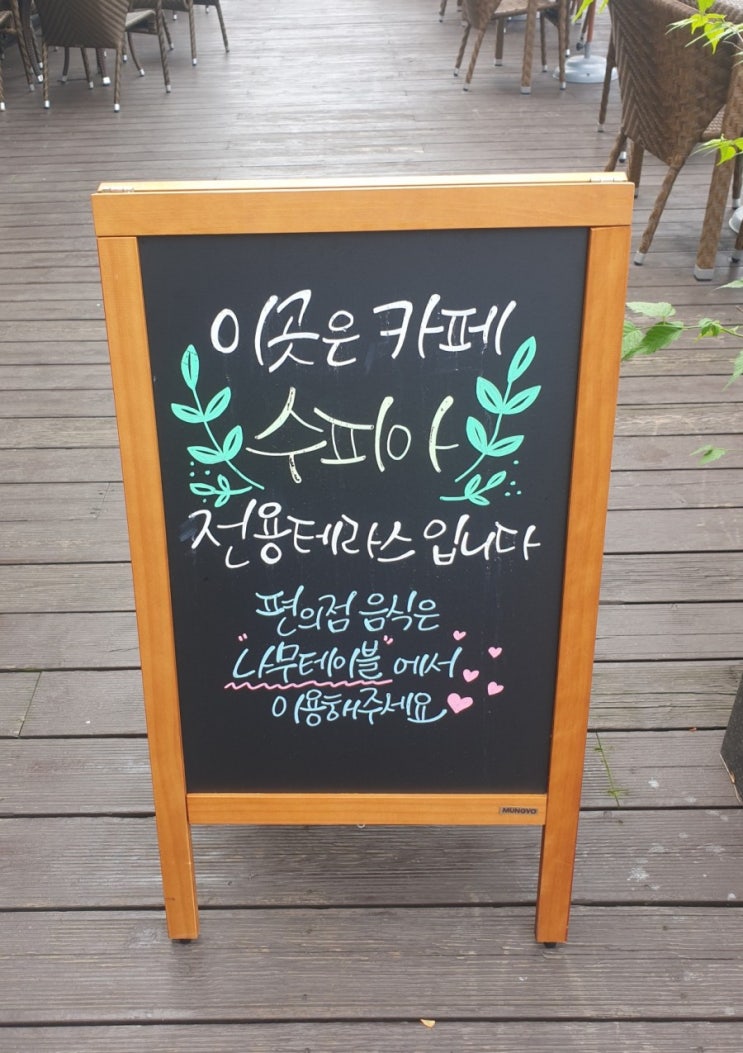 이곳은 카페
수피아
전용테라스 입니다
편의점 음식은
"나무테이블"에서
이용해주세요
MUNGYO